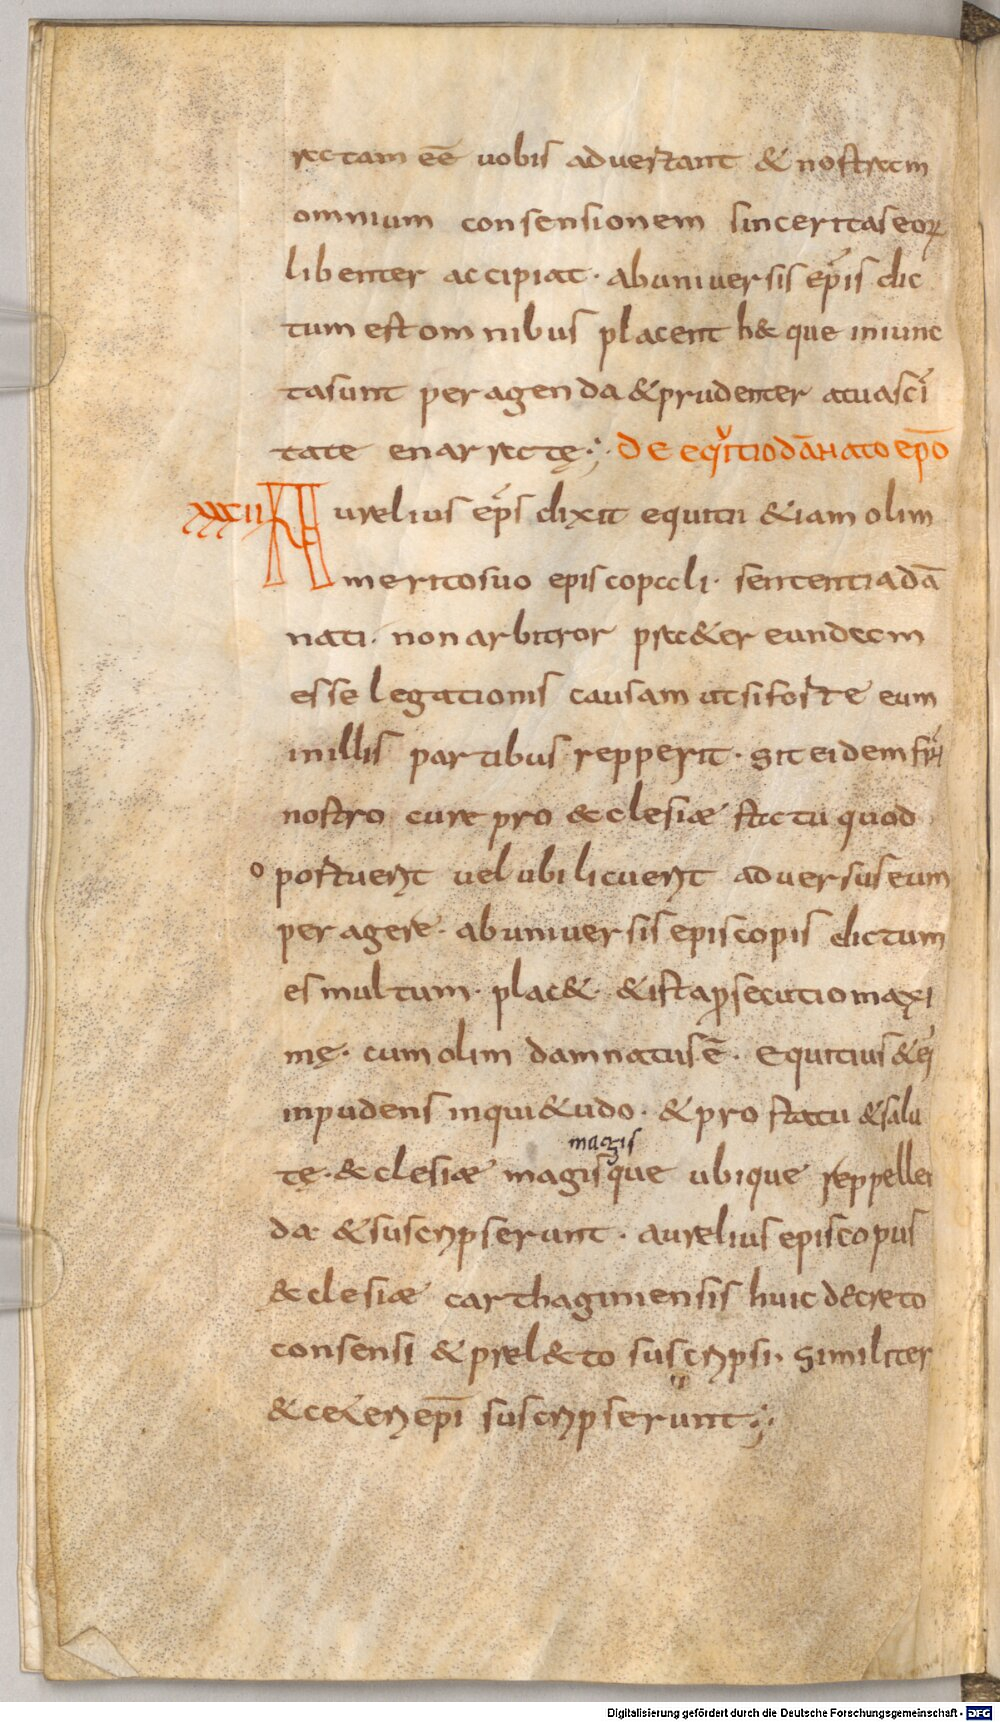 rectam eē uobis aduertant & nostram
omnium consensionem sinceritas eoꝝ
libenter accipiat · ab uniuersis ep̄is dic
tum est omnibus placent h& que iniunc
ta sunt peragenda & prudenter a tua sc̄i
tate enarrectę ; De equitio dānato ep̄o
xxcii Aurelius ep̄s dixit equitii &iam olim
merito suo episcopali · sententia dā
nati · non arbitror pret&er eundem
esse legationis causam ut si forte eum
in illis partibus repperit · sit eidem fr̄i
nostro cure pro &clesiæ statu quod
oportuerit uel ubi licuerit aduersus eum
peragere · ab uniuersis episcopis dictum
es multum · plac& · & ista ꝓsecutio maxi
mę · cum olim damnatus ē · equitius & ei
inpudens inqui&udo · & pro statu & salu
magis
te · &clesiæ magisque ubique reppellen
da · & suscripserunt · aurelius episcopus
&clesiæ carthaginiensis huic decreto
consensi & prel&to suscripsi · similiter
& ceteri ep̄i suscripserunt ;
Digitalisierung gefördert durch die Deutsche Forschungsgemeinschaft - DFG